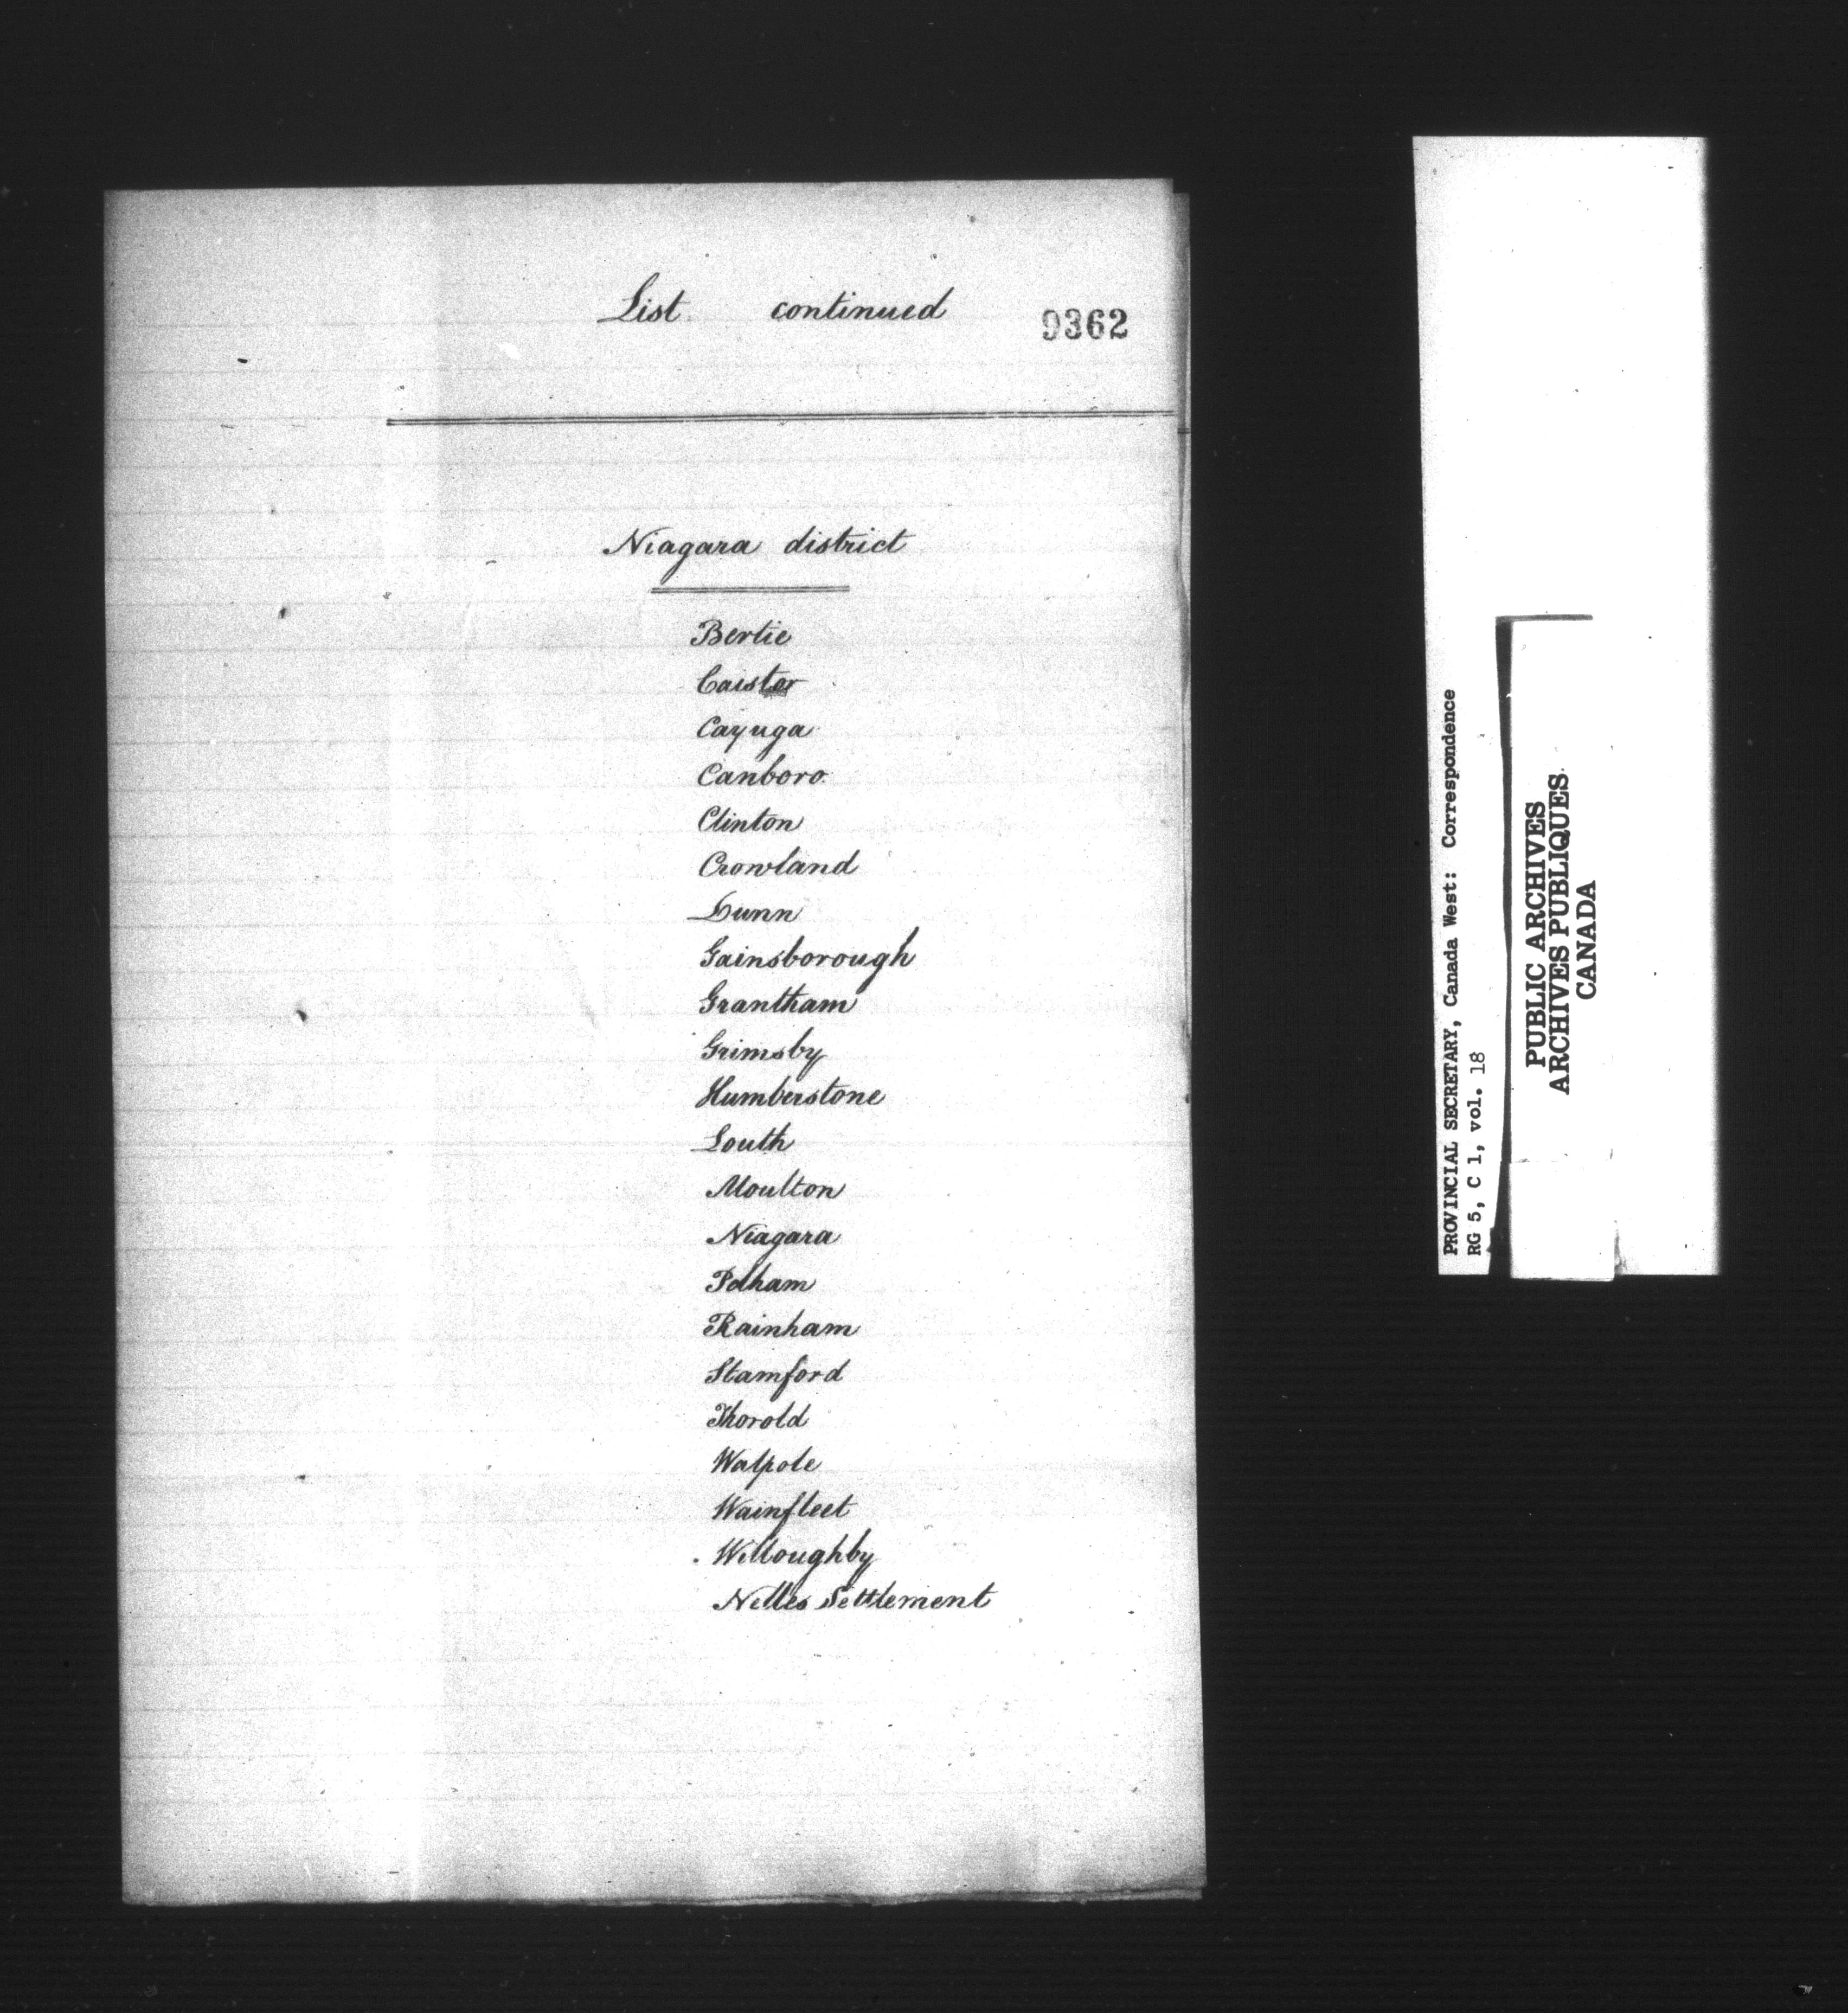 List continued
9362
Niagara district
Bertie
Caistor
Cayuga
Canboro
Clinton
Crowland
Dunn
Gainsborough
Grantham
Grimsby
Humberstone
Louth
Moulton
Niagara
Pelham
Rainham
Stamford
Thorold
Walpole
Wainfleet
Willoughby
Nelles Settlement
PROVINCIAL SECRETARY, Canada West: Correspondence
RG 5, C 1, vol. 18
PUBLIC ARCHIVES
ARCHIVES PUBLIQUES
CANADA